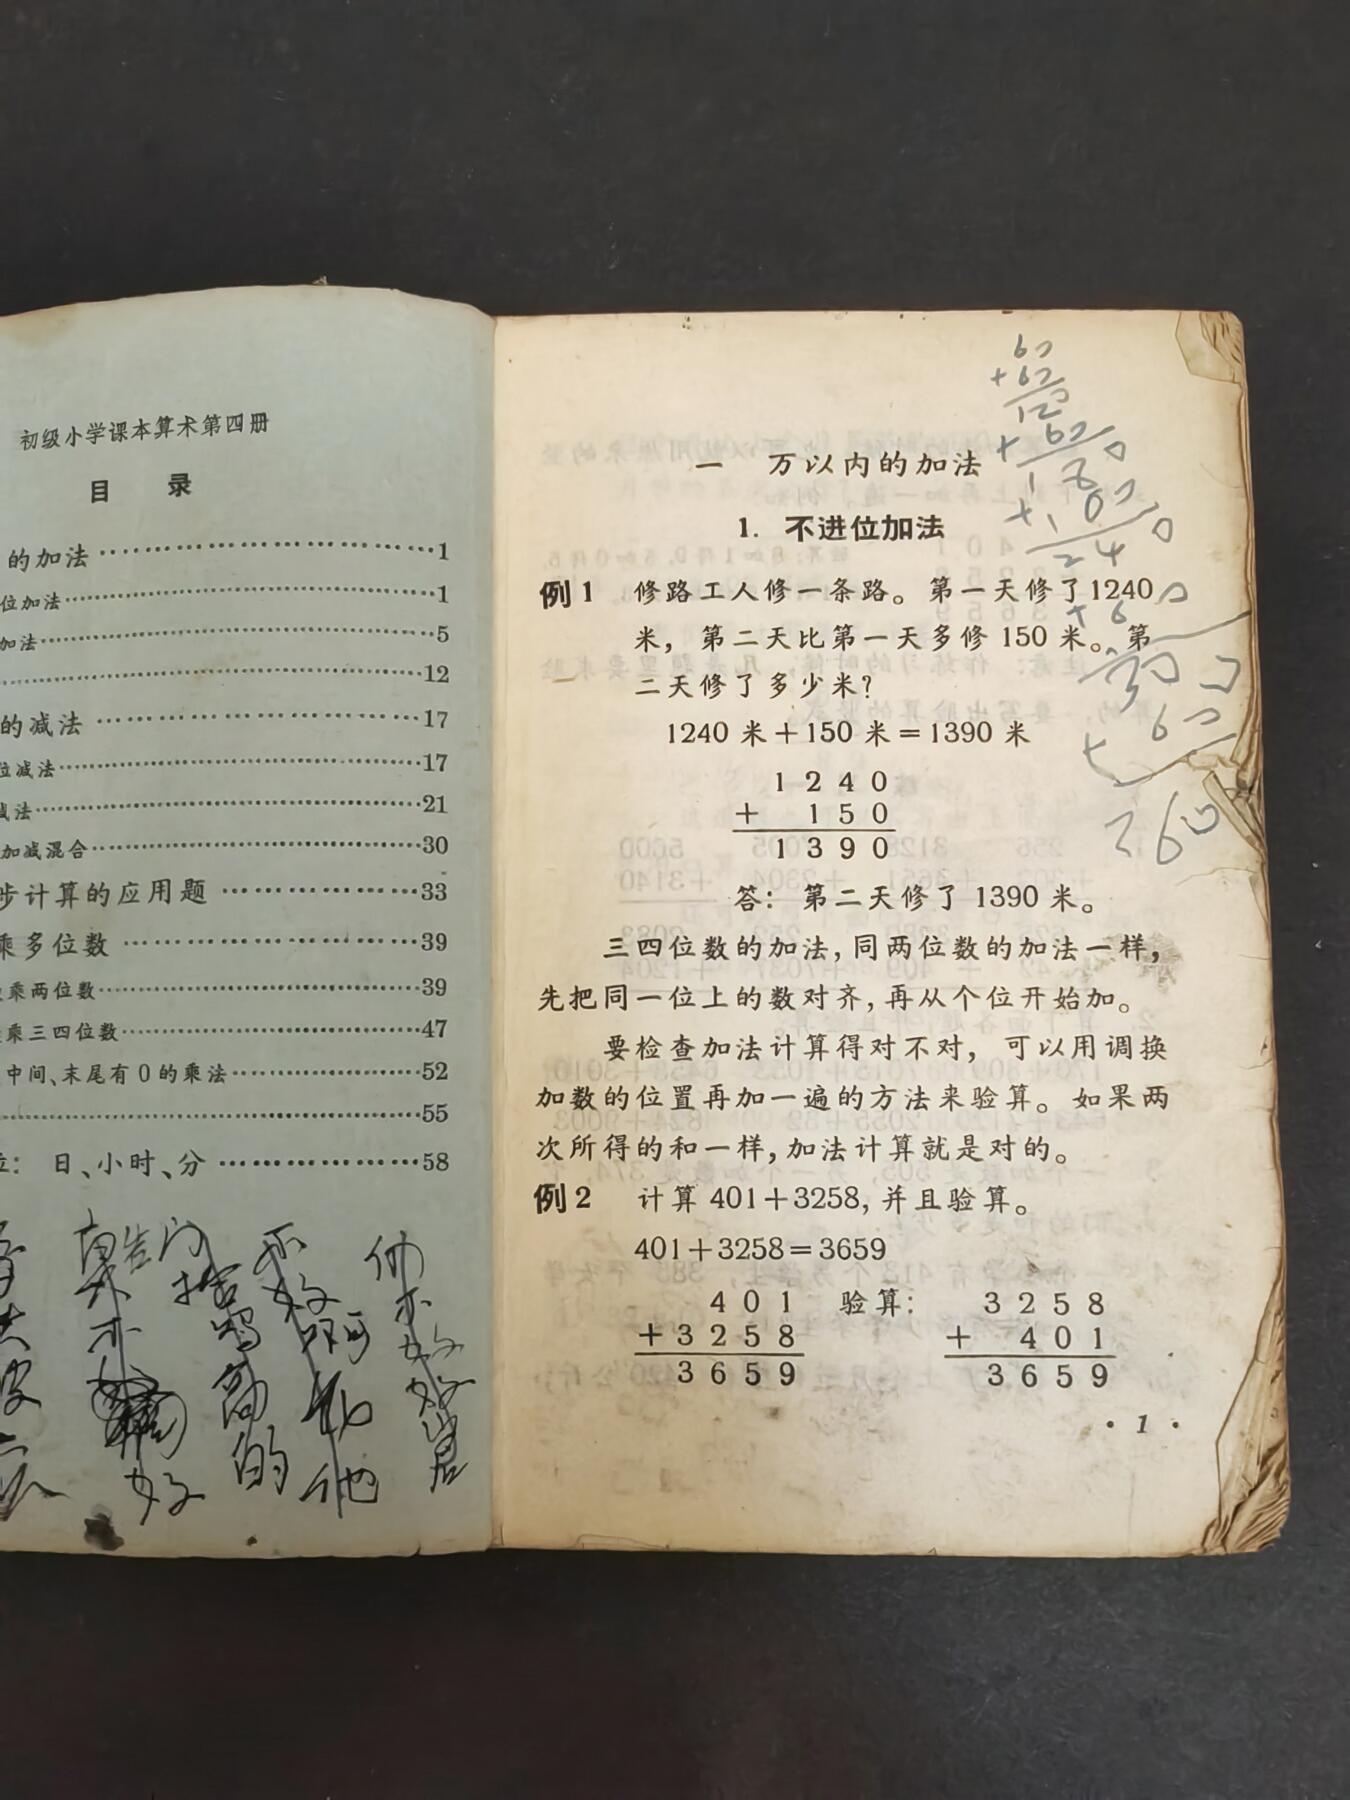 初级小学课本算术第四册
目 录
的加法……………………………1
位加法……………………………1
加法………………………………5
……………………………………12
的减法……………………………17
位减法……………………………17
减法………………………………21
加减混合…………………………30
步计算的应用题…………………33
乘多位数…………………………39
乘两位数…………………………39
乘三四位数………………………47
中间、末尾有0的乘法……………52
……………………………………55
位: 日、小时、分…………………58
一 万以内的加法
1. 不进位加法
例1 修路工人修一条路。第一天修了1240
米, 第二天比第一天多修 150 米。第
二天修了多少米?
1240 米+150 米=1390 米
1 2 4 0
+ 1 5 0
1 3 9 0
答: 第二天修了 1390 米。
三四位数的加法, 同两位数的加法一样,
先把同一位上的数对齐, 再从个位开始加。
要检查加法计算得对不对, 可以用调换
加数的位置再加一遍的方法来验算。如果两
次所得的和一样, 加法计算就是对的。
例2 计算 401+3258, 并且验算。
401+3258=3659
4 0 1 验算: 3 2 5 8
+3 2 5 8 + 4 0 1
3 6 5 9 3 6 5 9
· 1 ·
60
+60
120
+60
180
+60
240
+60
300
+60
360